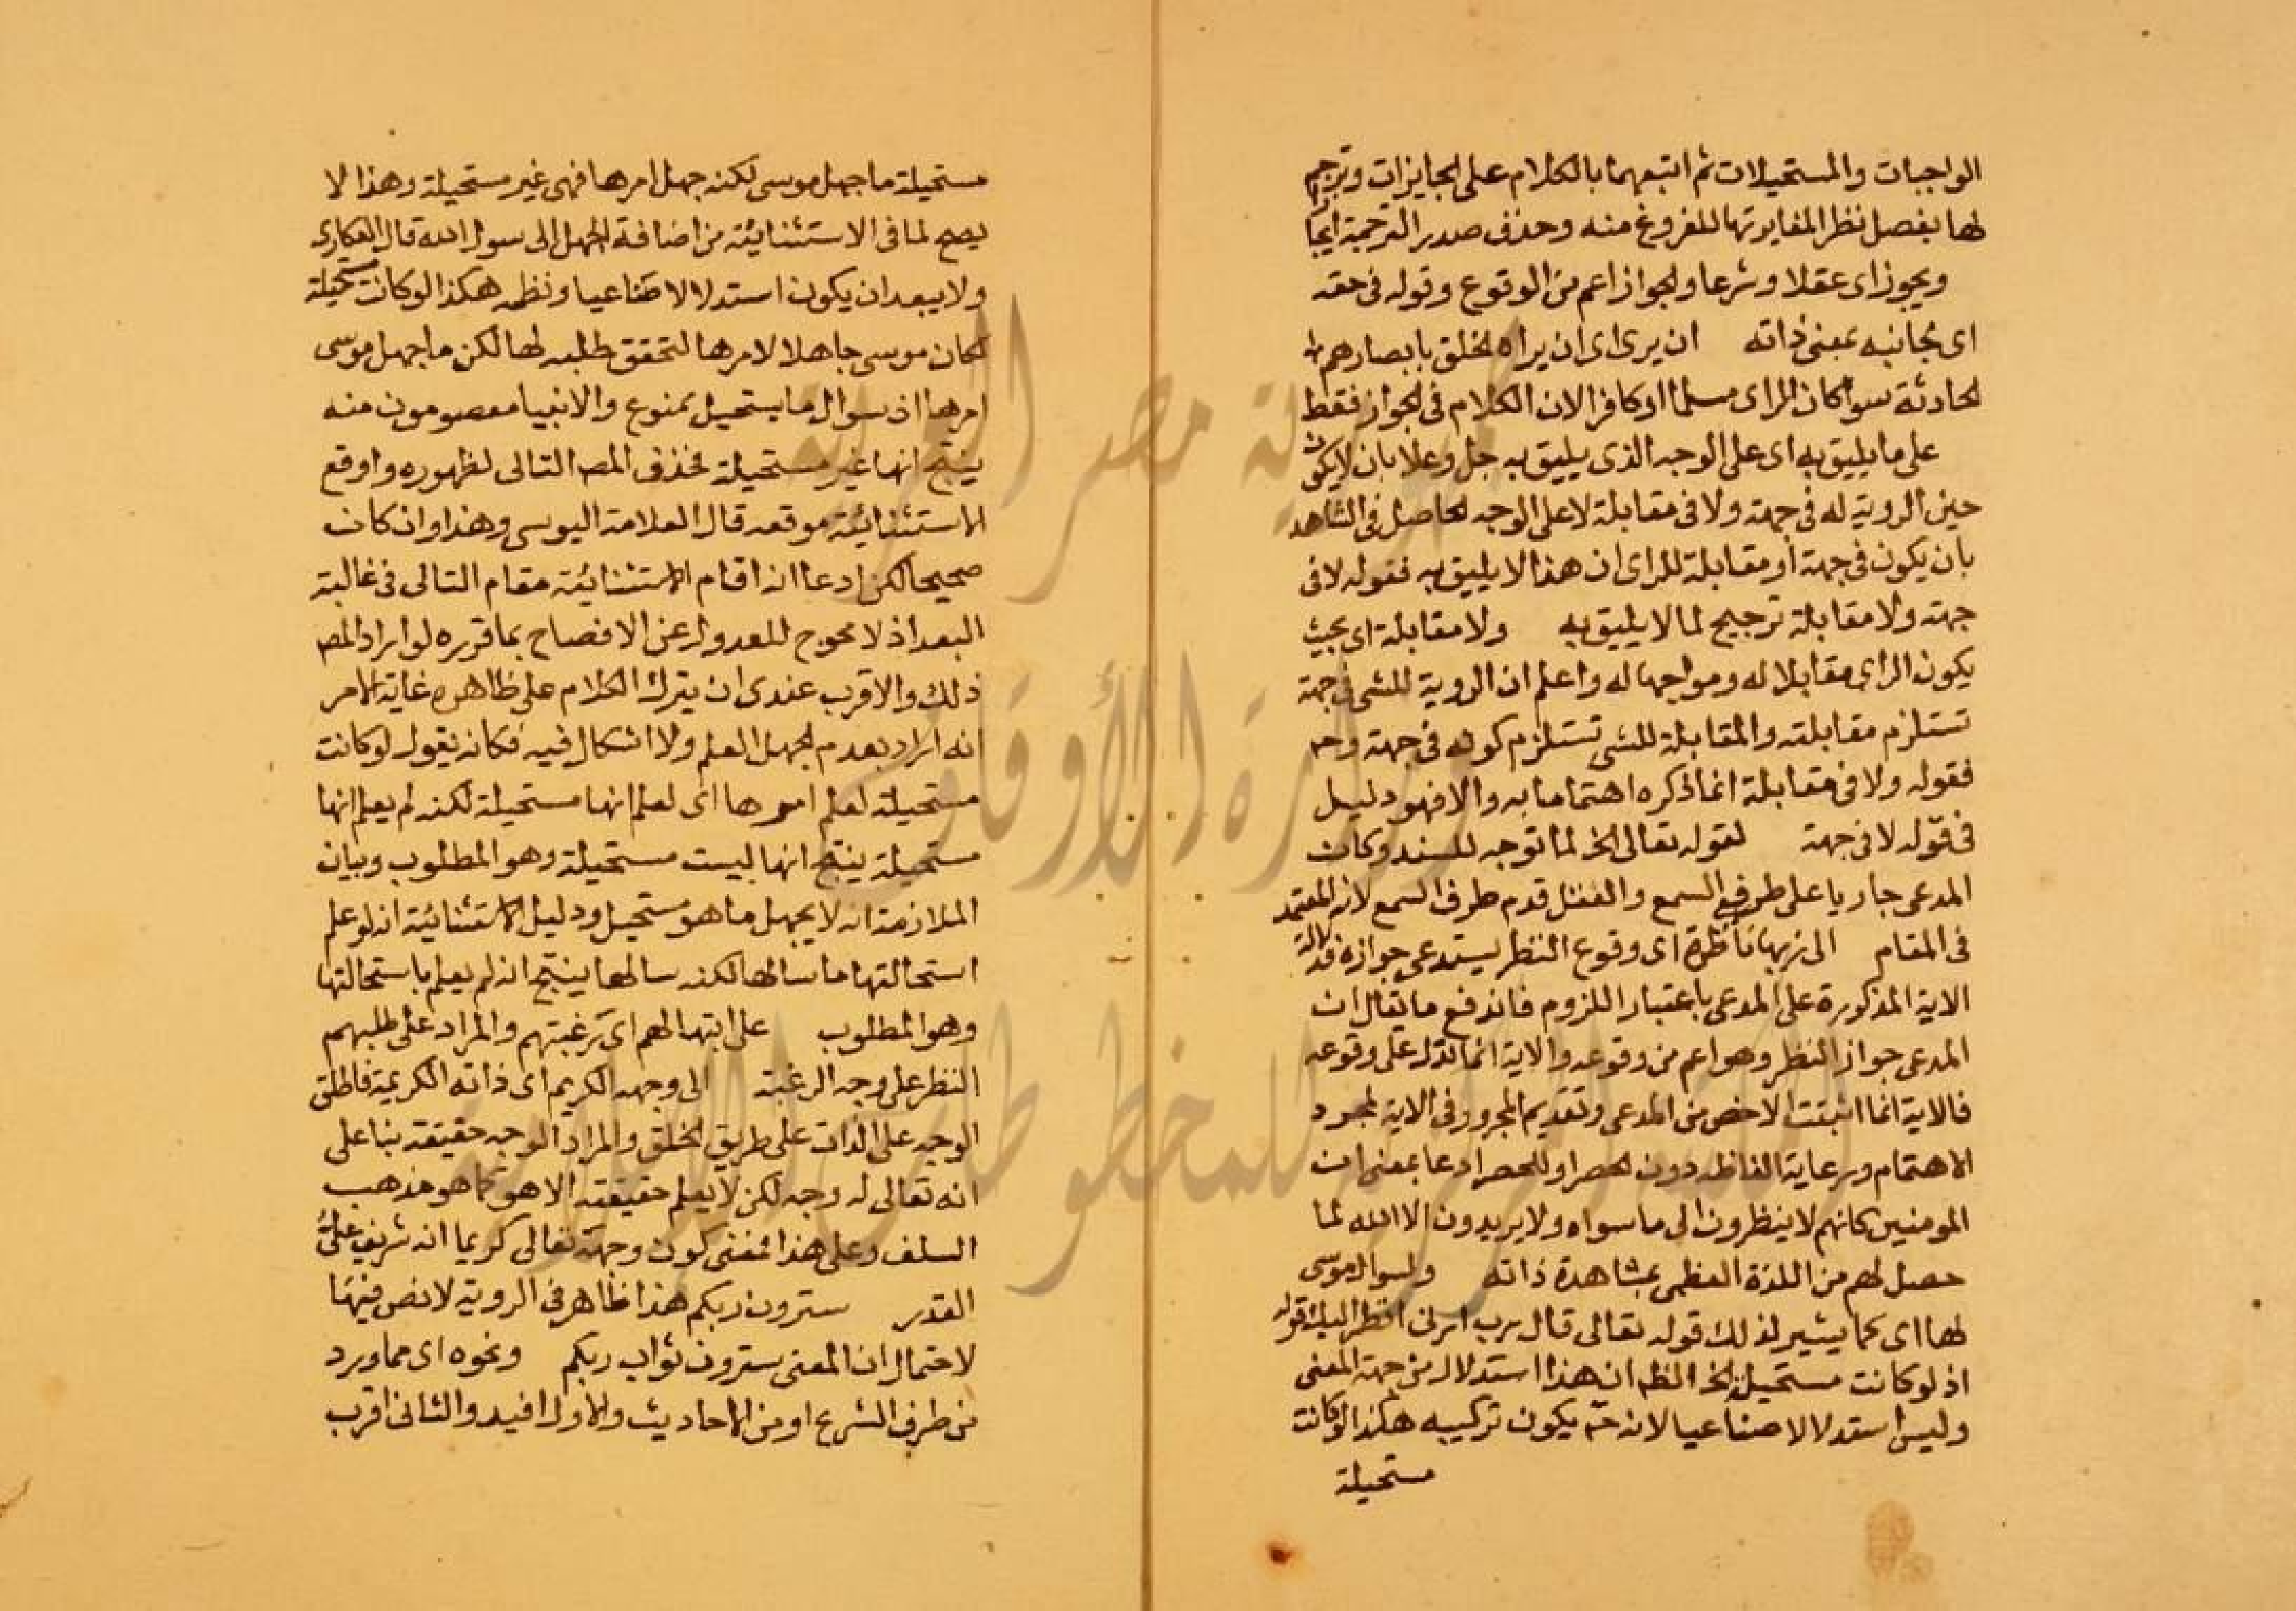 الواجبات والمستحيلات ثم اتبعهما بالكلام على الجايزات وترجم
لها بفصل نظرا لمغايرتها للمفروغ منه وحذف صدر الترجمة
ويجوز اى عقلا وشرعا والجواز اعم من الوقوع وقوله فى حقه
اى بجانبه بمعنى ذاته ان يرى اى ان يراه الخلق بابصارهم
الحادثة سوا كان الراى مسلما او كافرا لان الكلام فى الجواز فقط
على ما يليق به اى على الوجه الذى يليق به جل وعلا بان لا يكون
حين الروية له فى جهة ولا فى مقابلة لا على الوجه الحاصل فى الشاهد
بان يكون فى جهة او مقابلة للراى ان هذا لا يليق به فقوله لا فى
جهة ولا مقابلة ترجيح لما لا يليق به ولا مقابلة اى بحيث
يكون الراى مقابلا له ومواجها له واعلم ان الروية للشى فى جهة
تستلزم مقابلته والمقابلة للشى تستلزم كونه فى جهة وح
فقوله ولا فى مقابلة انما ذكره اهتماما به والا فهو دليل
فى قوله لا فى جهة لقوله تعالى الخ لما توجه للسند وكان
المدعى جاريا على طرفى السمع والعقل قدم طرف السمع لانه المعتمد
فى المقام الى ربها ناظرة اى وقوع النظر يستدعى جوازه فدلالة
الاية المذكورة على المدعى باعتبار اللزوم فاندفع ما يقال ان
المدعى جواز النظر وهو اعم من وقوعه والاية انما تدل على وقوعه
فالاية انما اثبتت الاخص من المدعى وتقديم المجرور فى الاية لمجرد
الاهتمام ورعاية الفاظه دون الحصر او للحصر ادعا بمعنى ان
المومنين كانهم لا ينظرون الى ما سواه ولا يريدون الا الله لما
حصل لهم من اللذة العظمى بمشاهدة ذاته ولسوال موسى
لها اى كما يشير لذلك قوله تعالى قال رب ارنى انظر اليك قوله
اذ لو كانت مستحيلة الخ الظه ان هذا استدلال من جهة المعنى
وليس استدلالا صناعيا لانه ح يكون تركيبه هكذا لو كانت
مستحيلة
مستحيلة ما جهل موسى لكنه جهل امرها فهى غير مستحيلة وهذا لا
يصح لما فى الاستثنائية من اضافة الجهل الى سول الله قال العكارى
ولا يبعد ان يكون استدلالا صناعيا ونظمه هكذا لو كانت مستحيلة
لكان موسى جاهلا لامرها لتحقق طلبه لها لكن ما جهل موسى
امرها اذ سوال ما يستحيل ممنوع والانبيا معصومون منه
ينتج انها غير مستحيلة فحذف المص التالى لظهوره واوقع
الاستثنائية موقعه قال العلامة اليوسى وهذا وان كان
صحيحا لكن ادعا انه اقام الاستثنائية مقام التالى فى غالبة
البعد اذ لا محوج للعدول عن الافصاح بما قرره لو اراد المص
ذلك والاقرب عندى ان يترك الكلام على ظاهره غاية الامر
انه اراد بعدم الجهل العلم ولا اشكال فيه فكانه يقول لو كانت
مستحيلة لعلم امرها اى لعلم انها مستحيلة لكنه لم يعلم انها
مستحيلة ينتج انها ليست مستحيلة وهو المطلوب وبيان
الملازمة انه لا يجهل ما هو مستحيل ودليل الاستثنائية انه لو علم
استحالتها ما سالها لكنه سالها ينتج انه لم يعلم باستحالتها
وهو المطلوب على ابتهالهم اى رغبتهم والمراد على طلبهم
النظر على وجه الرغبة الى وجهه الكريم اى ذاته الكريمة فاطلق
الوجه على الذات على طريق الخلق والمراد الوجه حقيقة بنا على
انه تعالى له وجه لكن لا يعلم حقيقته الا هو كما هو مذهب
السلف وعلى هذا فمعنى كون وجهه تعالى كريما انه شريف على
القدر سترون ربكم هذا ظاهر فى الروية لا نص فيها
لاحتمال ان المعنى سترون ثواب ربكم ونحوه اى مما ورد
من طرف الشرع او من الاحاديث والاول افيد والثانى اقرب